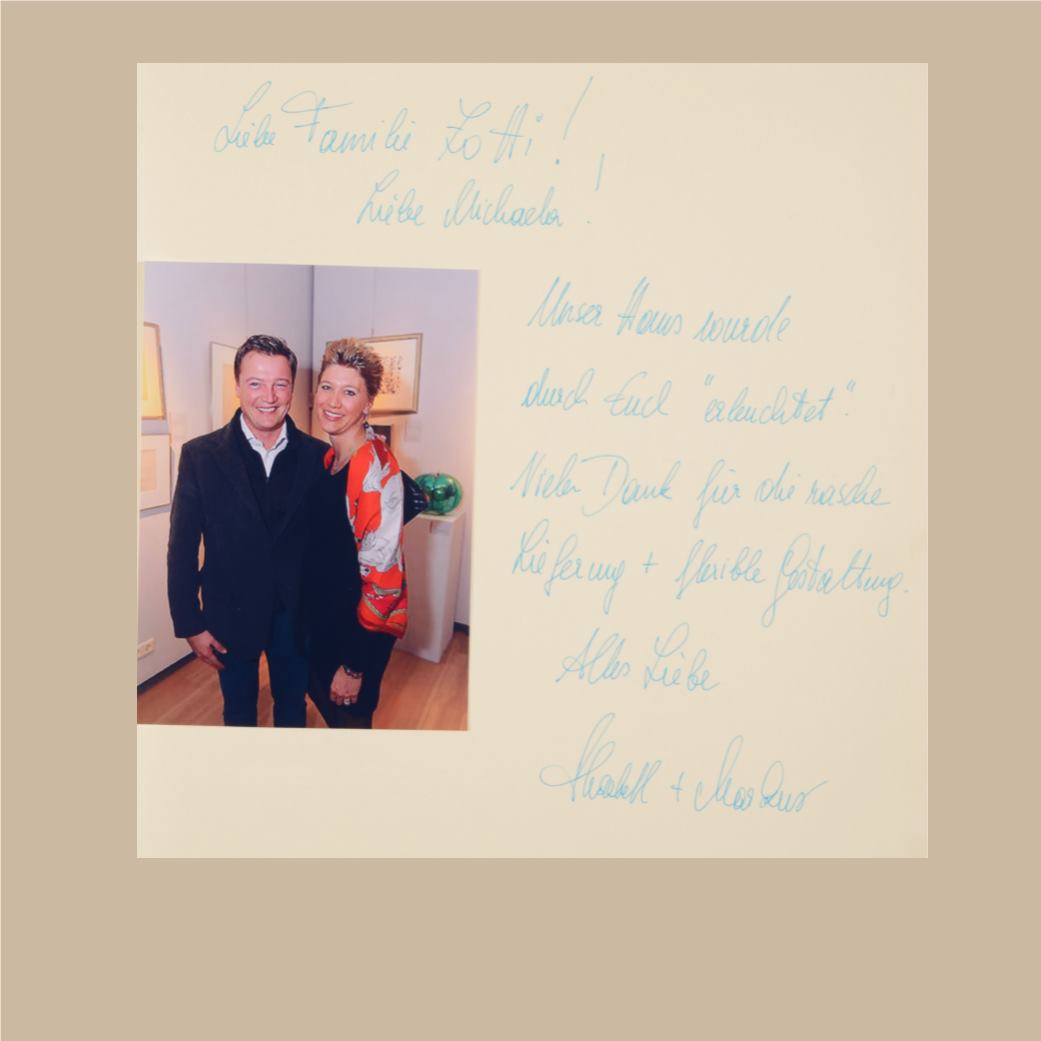 Liebe Familie Zotti!
Liebe Michaela!
Unser Haus wurde
durch Euch "erleuchtet".
Vielen Dank für die rasche
Lieferung + flexible Gestaltung.
Alles Liebe
+ Markus